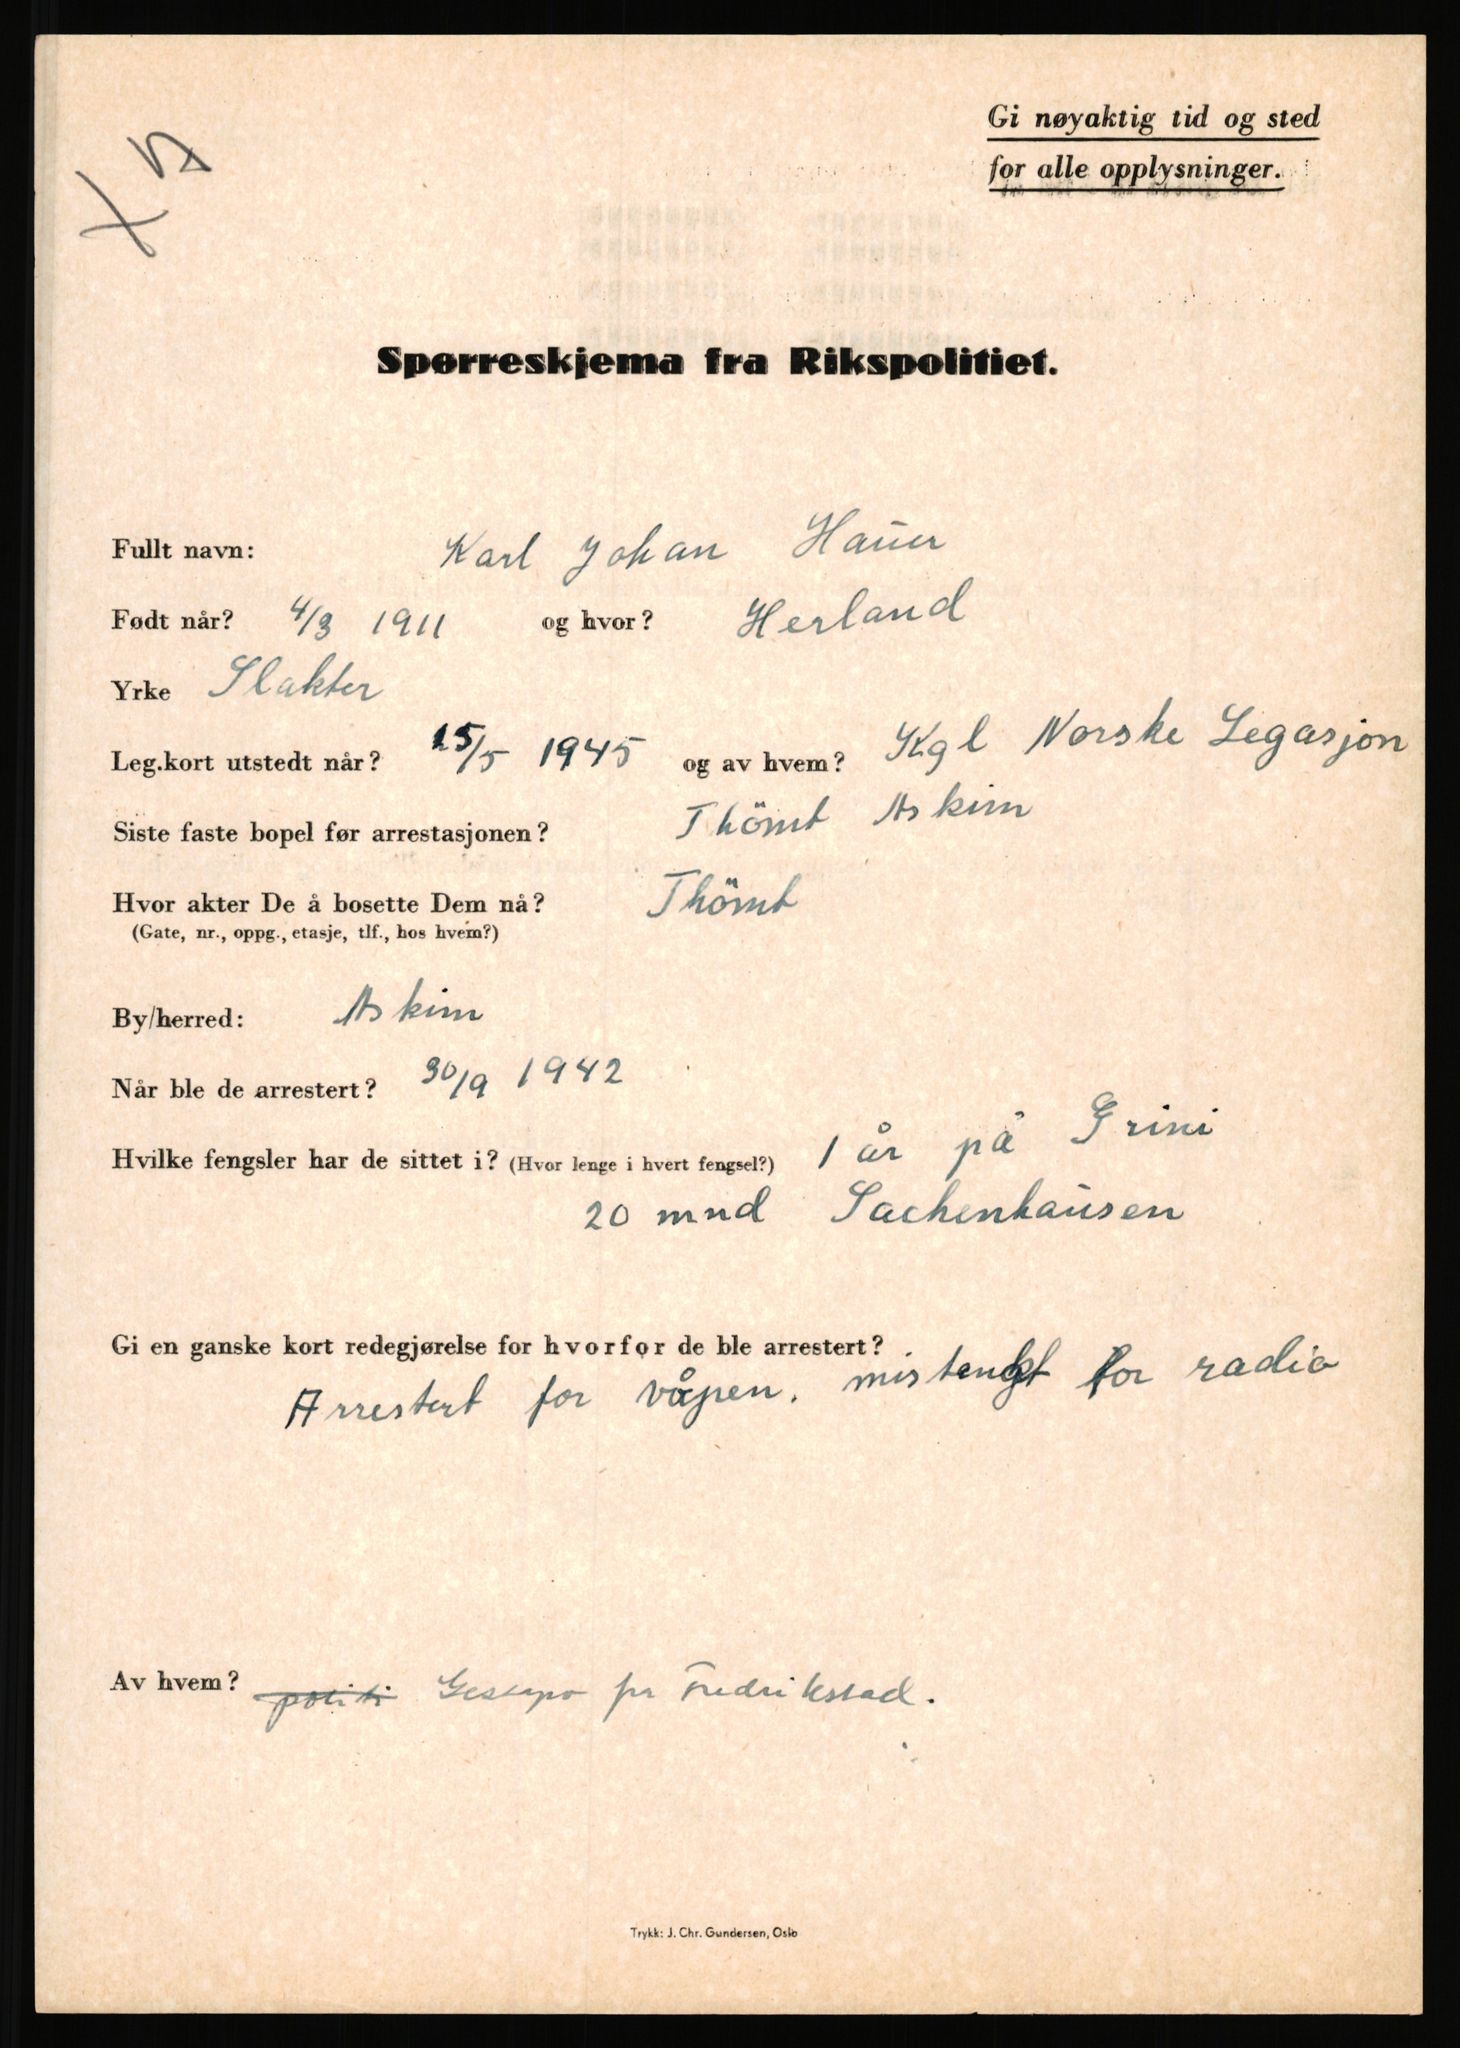 Gi nøyaktig tid og sted
for alle opplysninger.
Spørreskjema fra Rikspolitiet.
Fullt navn: Karl Johan Haŭer
Født når? 4/3 1911 og hvor? Herland
Yrke Slakter
Leg.kort utstedt når? 15/5 1945 og av hvem? Kgl Norske Legasjon
Siste faste bopel før arrestasjonen? Thömt Askim
Hvor akter De å bosette Dem nå? Thömt
(Gate, nr., oppg., etasje, tlf., hos hvem?)
By/herred: Askim
Når ble de arrestert? 30/9 1942
Hvilke fengsler har de sittet i? (Hvor lenge i hvert fengsel?) 1 år på Grini
20 mnd Sachenhaŭsen
Gi en ganske kort redegjørelse for hvorfor de ble arrestert?
Arrestert for våpen. mistenkt for radio
Av hvem? politi Gestapo fra Fredrikstad.
Trykk: J. Chr. Gundersen, Oslo